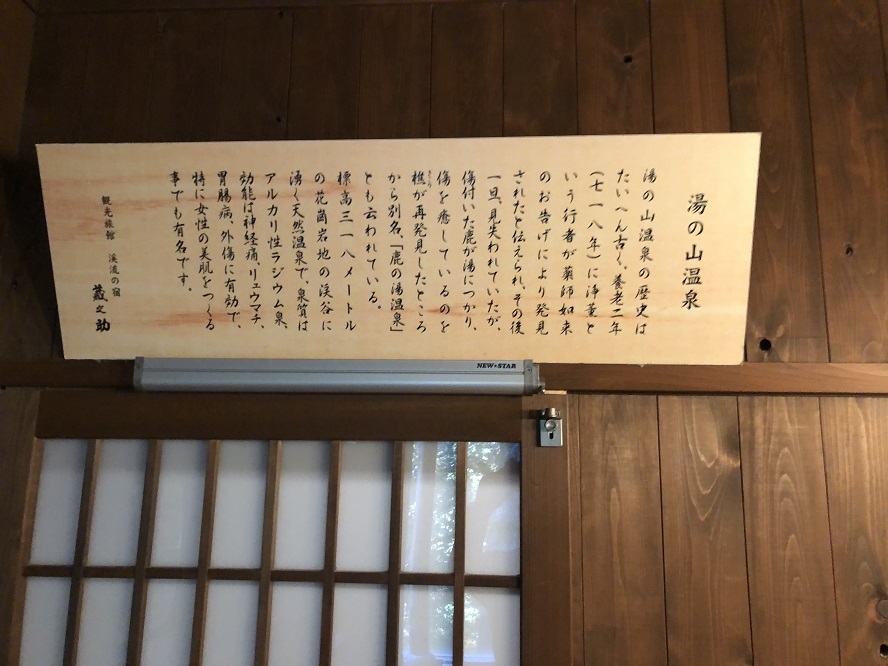 湯の山温泉
湯の山温泉の歴史は
たいへん古く、養老二年
（七一八年）に浄薫と
いう行者が薬師如来
のお告げにより発見
されたと伝えられ、その後
一旦、見失われていたが、
傷付いた鹿が湯につかり、
傷を癒しているのを
樵が再発見したところ
から別名、「鹿の湯温泉」
とも云われている。
標高三一八メートル
の花崗岩地の渓谷に
湧く天然温泉で、泉質は
アルカリ性ラジウム泉、
効能は神経痛、リュウマチ、
胃腸病、外傷に有効で、
特に女性の美肌をつくる
事でも有名です。
観光旅館 渓流の宿
蔵之助
NEW★STAR